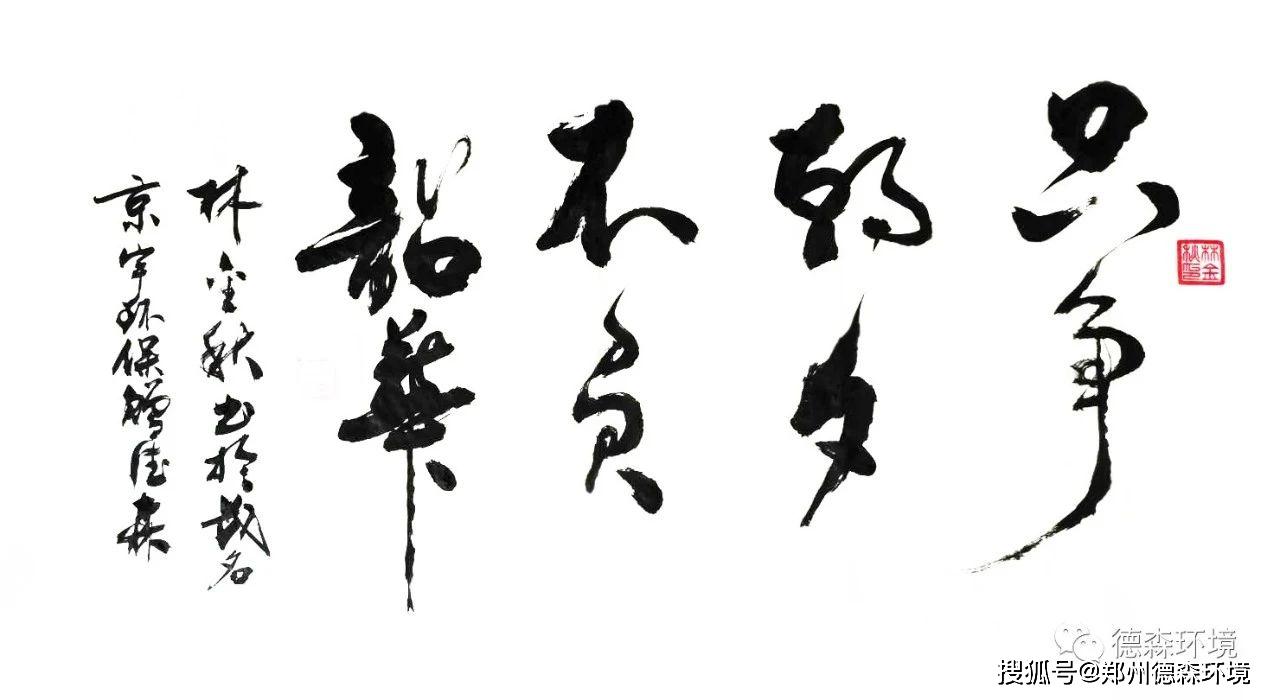 只争
朝夕
不负
韶华
林金秋书于成名
京宇环保赠德森
林金
秋印
德森环境
搜狐号@郑州德森环境